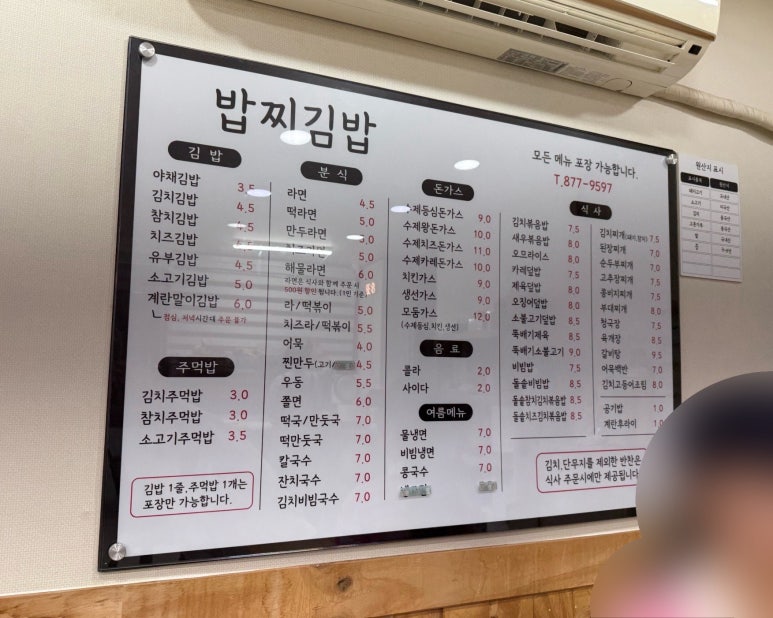 밥찌김밥
모든 메뉴 포장 가능합니다.
T.877-9597
김 밥
야채김밥 3.5
김치김밥 4.5
참치김밥 4.5
치즈김밥
유부김밥 4.5
소고기김밥 5.0
계란말이김밥 6.0
ㄴ점심, 저녁시간대 주문 불가
주먹밥
김치주먹밥 3.0
참치주먹밥 3.0
소고기주먹밥 3.5
김밥 1줄,주먹밥 1개는
포장만 가능합니다.
분 식
라면 4.5
떡라면 5.0
만두라면 5.0
5.0
해물라면 6.0
라면은 식사와 함께 주문 시
500원 할인 됩니다.(1인 기준)
라/떡볶이 5.0
치즈라/떡볶이 5.5
어묵 4.0
찐만두(고기/ 4.5
우동 5.5
쫄면 6.0
떡국/만둣국 7.0
떡만둣국 7.0
칼국수 7.0
잔치국수 7.0
김치비빔국수 7.0
돈가스
수제등심돈가스 9.0
수제왕돈가스 10.0
수제치즈돈가스 11.0
수제카레돈가스 10.0
치킨가스 9.0
생선가스 9.0
모둠가스 12.0
(수제등심,치킨,생선)
음 료
콜라 2.0
사이다 2.0
여름메뉴
물냉면 7.0
비빔냉면 7.0
콩국수 7.0
식 사
김치볶음밥 7.5
새우볶음밥 8.0
오므라이스 8.0
카레덮밥 7.5
제육덮밥 8.0
오징어덮밥 8.0
소불고기덮밥 8.5
뚝배기제육 8.5
뚝배기소불고기 9.0
비빔밥 7.5
돌솥비빔밥 8.5
돌솥참치김치볶음밥 8.5
돌솥치즈김치볶음밥 8.5
김치찌개(돼지,참치) 7.5
된장찌개 7.0
순두부찌개 7.0
고추장찌개 7.5
콩비지찌개 7.5
부대찌개 8.0
청국장 7.5
육개장 8.5
갈비탕 9.5
어묵백반 7.0
김치고등어조림 8.0
공기밥 1.0
계란후라이 1.0
김치,단무지를 제외한 반찬은
식사 주문시에만 제공됩니다
원산지 표시